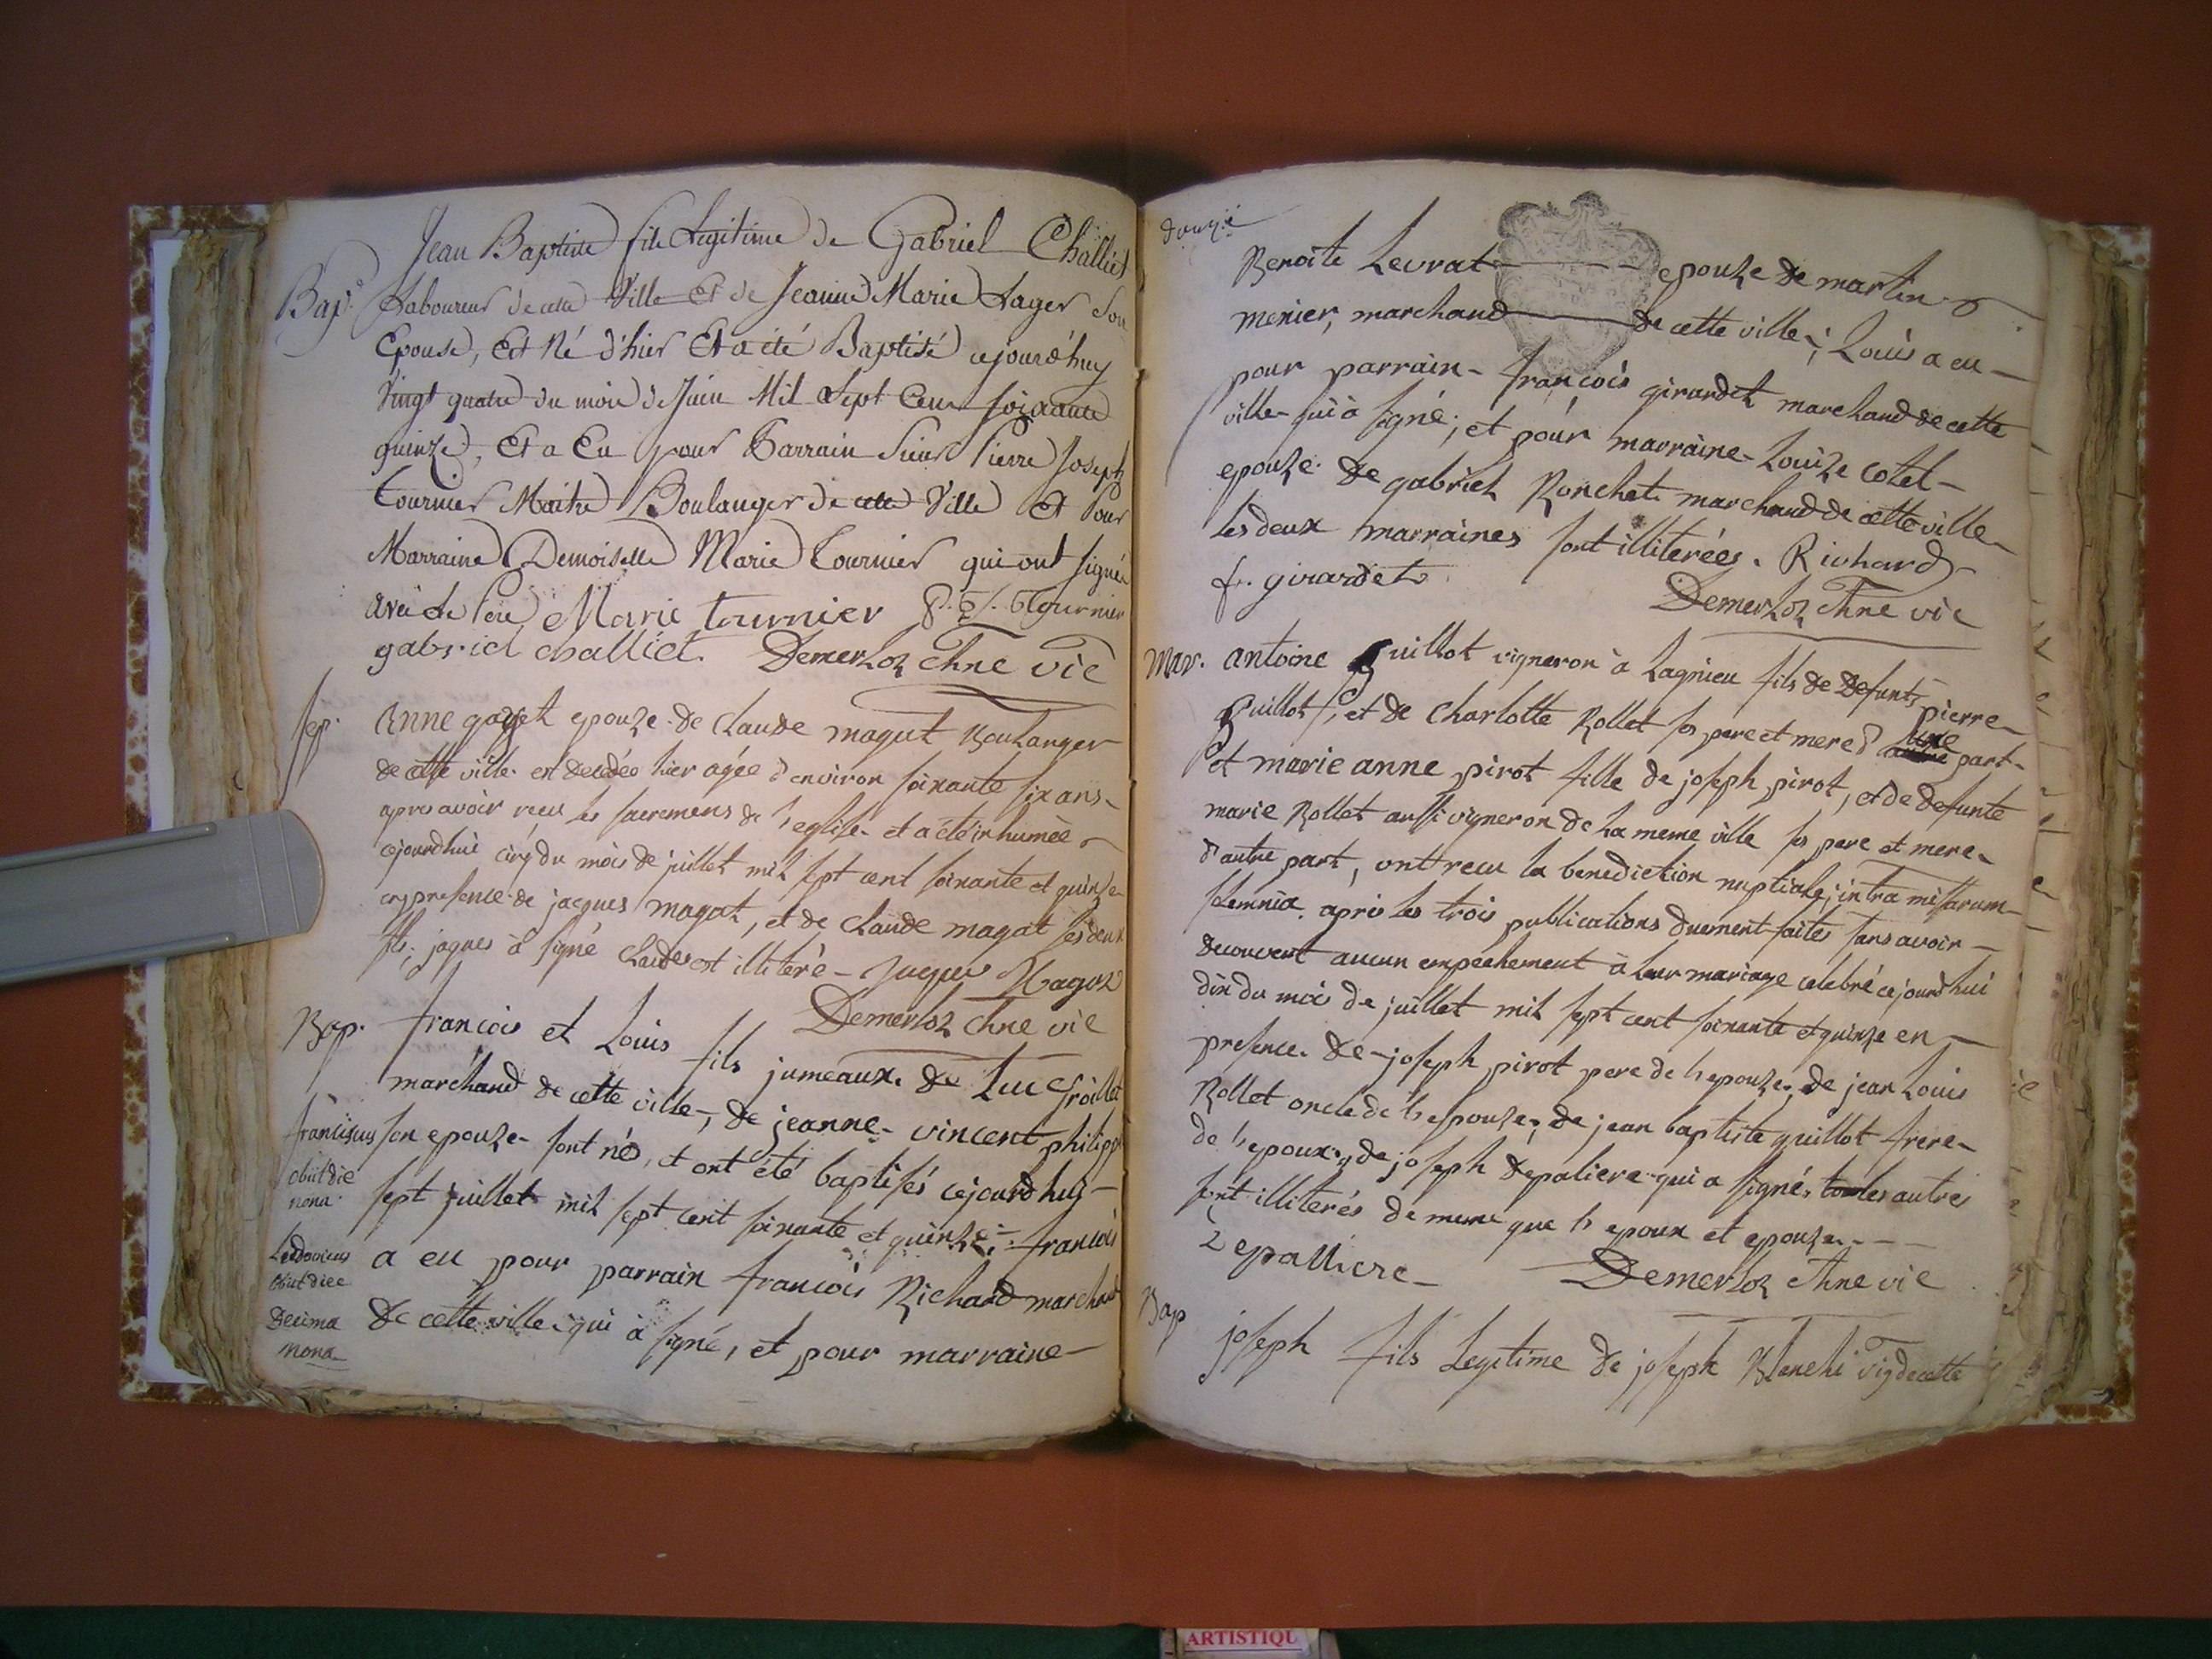 Jean Baptiste fils Legitime de Gabriel Challiet
Bap.
Laboureur de cette Ville Et de Jeanne Marie Lager Son
Epouse, Est Né d'hier Et a été Baptisé cejourd'huy
Vingt quatre du mois de Juin Mil Sept Cent soixante
quinze, Et a Eu pour Parrain Sieur Pierre Joseph
Tournier Maitre Boulanger de cette Ville Et Pour
Marraine Demoiselle Marie Tournier qui ont signé
avec le Pere Marie tournier P. J. Tournier
gabriel challiet. Demerloz chne vic
sep.
Anne gayet epouze de claude magut Boulanger
de cette ville est decedée hier agée d'environ soixante six ans
apres avoir recu les sacremens de l'eglise et a été inhumée
cejourdhui cinq du mois de juillet mil sept cent soixante et quinze
en presence de jacques magat, et de claude magat ses deux
fils, jaques à signé claude est illiteré - Jacques Magat
Demerloz chne vic
Bap.
francois et Louis fils jumeaux de Luc froillet
marchand de cette ville, de jeanne vincent philippe
son epouze sont nés, et ont été baptisés cejourdhuy
franciscus
obiit die
nona
sept juillet mil sept cent soixante et quinze; francois
a eu pour parrain francois Richard marchand
Ludovicus
obiit die
decima
nona
de cette ville qui à signé, et pour marraine
Benoite Levrat epouze de martin
menier, marchand de cette ville; Louis a eu
pour parrain francois girardet marchand de cette
ville qui à signé; et pour marraine Louize cotel
epouze de gabriel Ronchet marchand de cette ville
les deux marraines sont illiterées. Richard
fr. girardet Demerloz chne vic
Mar.
antoine guillot vigneron à Lagnieu fils de defunts pierre
guillot, et de charlotte Rollet ses pere et mere d'une part
et marie anne pirot fille de joseph pirot, et de defunte
marie Rollet aussi vigneron de la meme ville ses pere et mere
d'autre part, ont recu la benediction nuptiale, intra missarum
solemnia, apres les trois publications duement faites sans avoir
decouvert aucun empechement à leur mariage celebré cejourdhui
dix du mois de juillet mil sept cent soixante et quinze en
presence de joseph pirot pere de l'epouze, de jean Louis
Rollet oncle de l'epouze, de jean baptiste guillot frere
de l'epoux, de joseph depaliere qui a signé, les autres
sont illiterés de meme que l'epoux et epouze
Depalliere Demerloz chne vic
Bap
joseph fils Legitime de joseph Blenchi vig de cette
ARTISTIQU